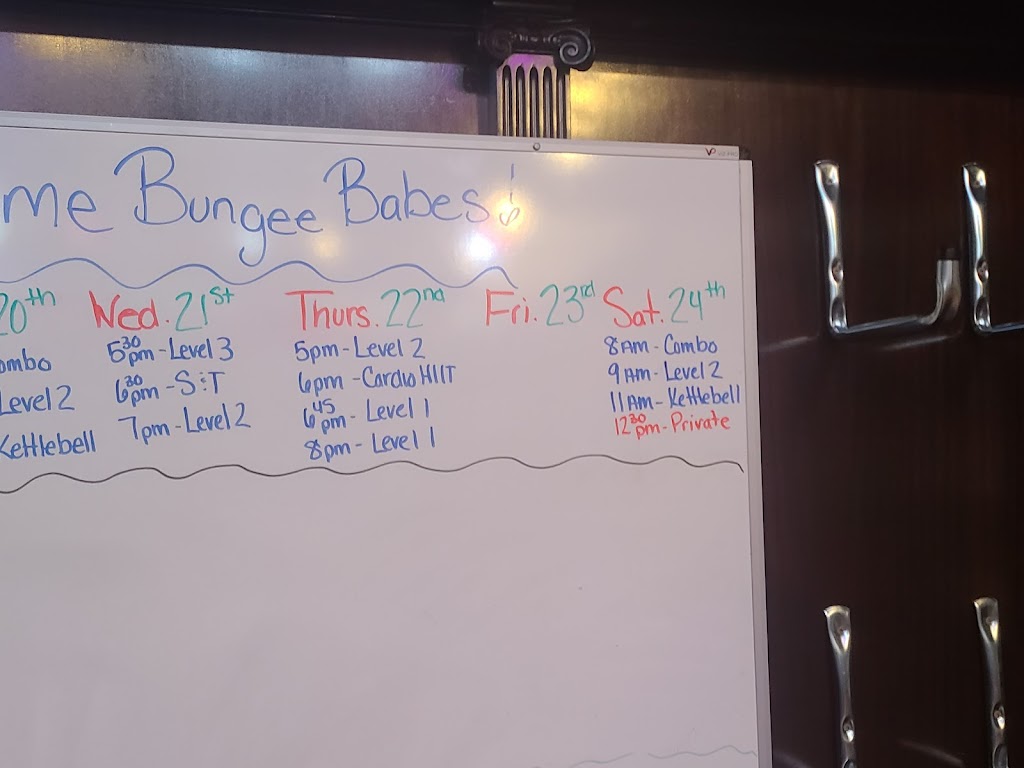 me Bungee Babes!
20th
ombo
Level 2
Kettlebell
Wed. 21st
5:30pm - Level 3
6:30pm - S:T
7pm - Level 2
Thurs. 22nd
5pm - Level 2
6pm - Cardio HIIT
6:45pm - Level 1
8pm - Level 1
Fri. 23rd
Sat. 24th
8AM - Combo
9AM - Level 2
11AM - Kettlebell
12:30pm - Private